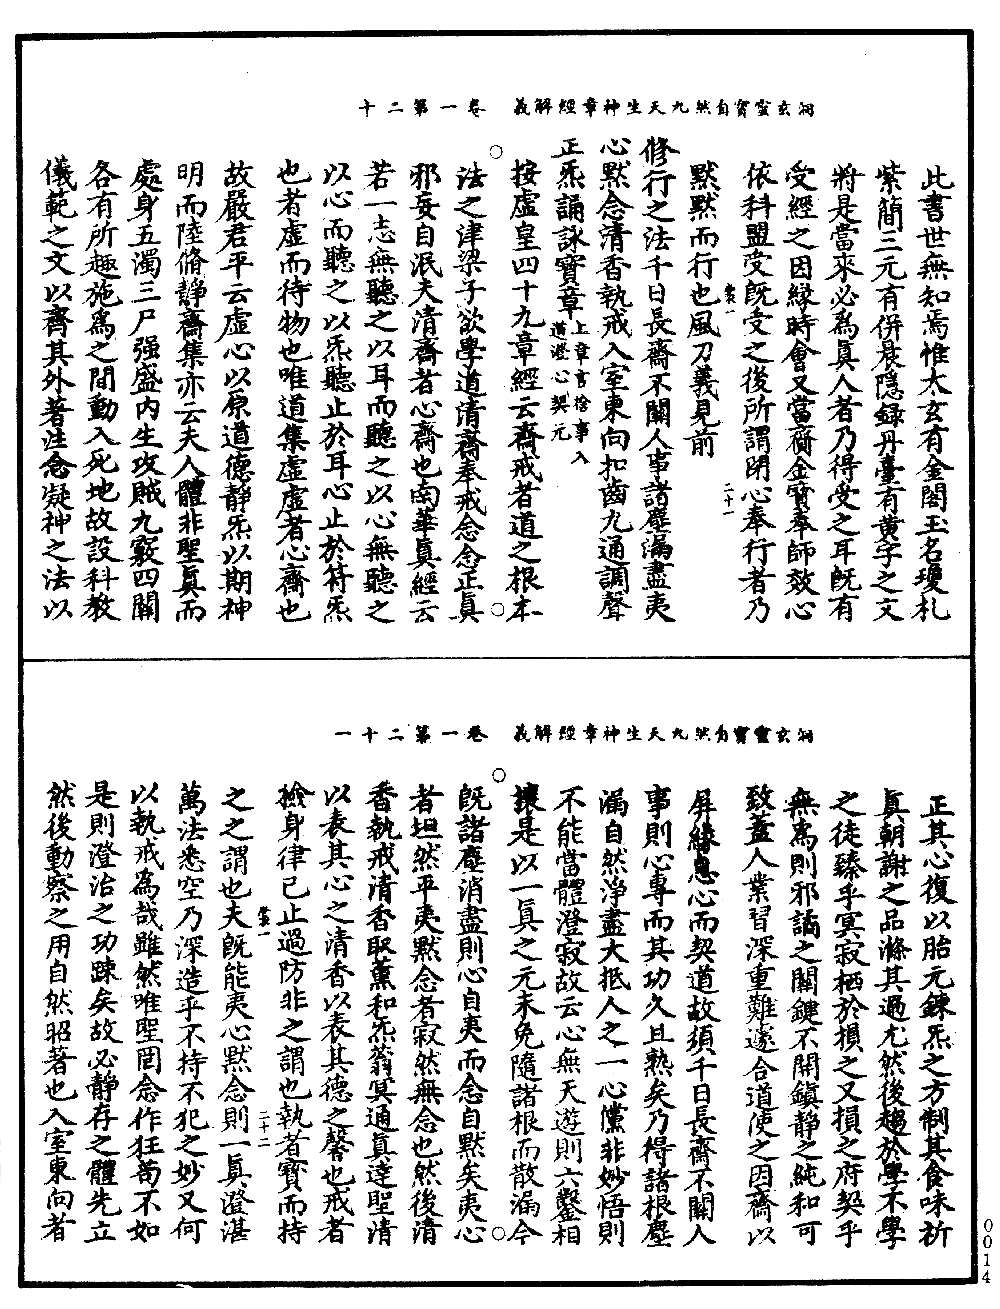 洞玄靈寶自然九天生神章經解義　卷一第二十
此書世無知焉惟太玄有金閣玉名瓊札
紫簡三元有併晨隱録丹臺有黄字之文
將是當來必爲眞人者乃得受之耳旣有
受經之因緣時會又當齎金寳奉師效心
依科盟受旣受之後所謂閉心奉行者乃
棠一　二十一
默默而行也風刀義見前
修行之法千日長齋不關人事諸塵漏盡夷
心默念清香執戒入室東向扣齒九通調聲
正炁誦詠寳章上章言捨事入道澄心契元
按虛皇四十九章經云齋戒者道之根本
法之津梁子欲學道清齋奉戒念念正眞
邪妄自泯夫清齋者心齋也南華眞經云
若一志無聽之以耳而聽之以心無聽之
以心而聽之以炁聽止於耳心止於符炁
也者虛而待物也唯道集虛虛者心齋也
故嚴君平云虛心以原道德靜炁以期神
明而陸脩靜齋集亦云夫人體非聖眞而
處身五濁三尸强盛内生攻賊九竅四關
各有所趣施爲之間動入死地故設科教
儀範之文以齊其外著注念凝神之法以
洞玄靈寶自然九天生神章經解義　卷一第二十一
正其心復以胎元鍊炁之方制其食味祈
眞朝謝之品滌其過尤然後趨於學不學
之徒臻乎冥寂栖於損之又損之府契乎
無爲則邪謫之關鍵不開鎮靜之純和可
致蓋人業習深重難遽合道使之因齋以
屏緣息心而契道故須千日長齋不關人
事則心專而其功久且熟矣乃得諸根塵
漏自然淨盡大抵人之一心儻非妙悟則
不能當體澄寂故云心無天遊則六鑿相
攘是以一眞之元未免隨諸根而散漏今
旣諸塵消盡則心自夷而念自默矣夷心
者坦然平夷默念者寂然無念也然後清
香執戒清香取薰和炁蓊冥通眞達聖清
以表其心之清香以表其德之馨也戒者
撿身律己止過防非之謂也執者寳而持
棠一　二十二
之之謂也夫旣能夷心默念則一眞澄湛
萬法悉空乃深造乎不持不犯之妙又何
以執戒爲哉雖然唯聖罔念作狂苟不如
是則澄治之功踈矣故必靜存之體先立
然後動察之用自然昭著也入室東向者
0014